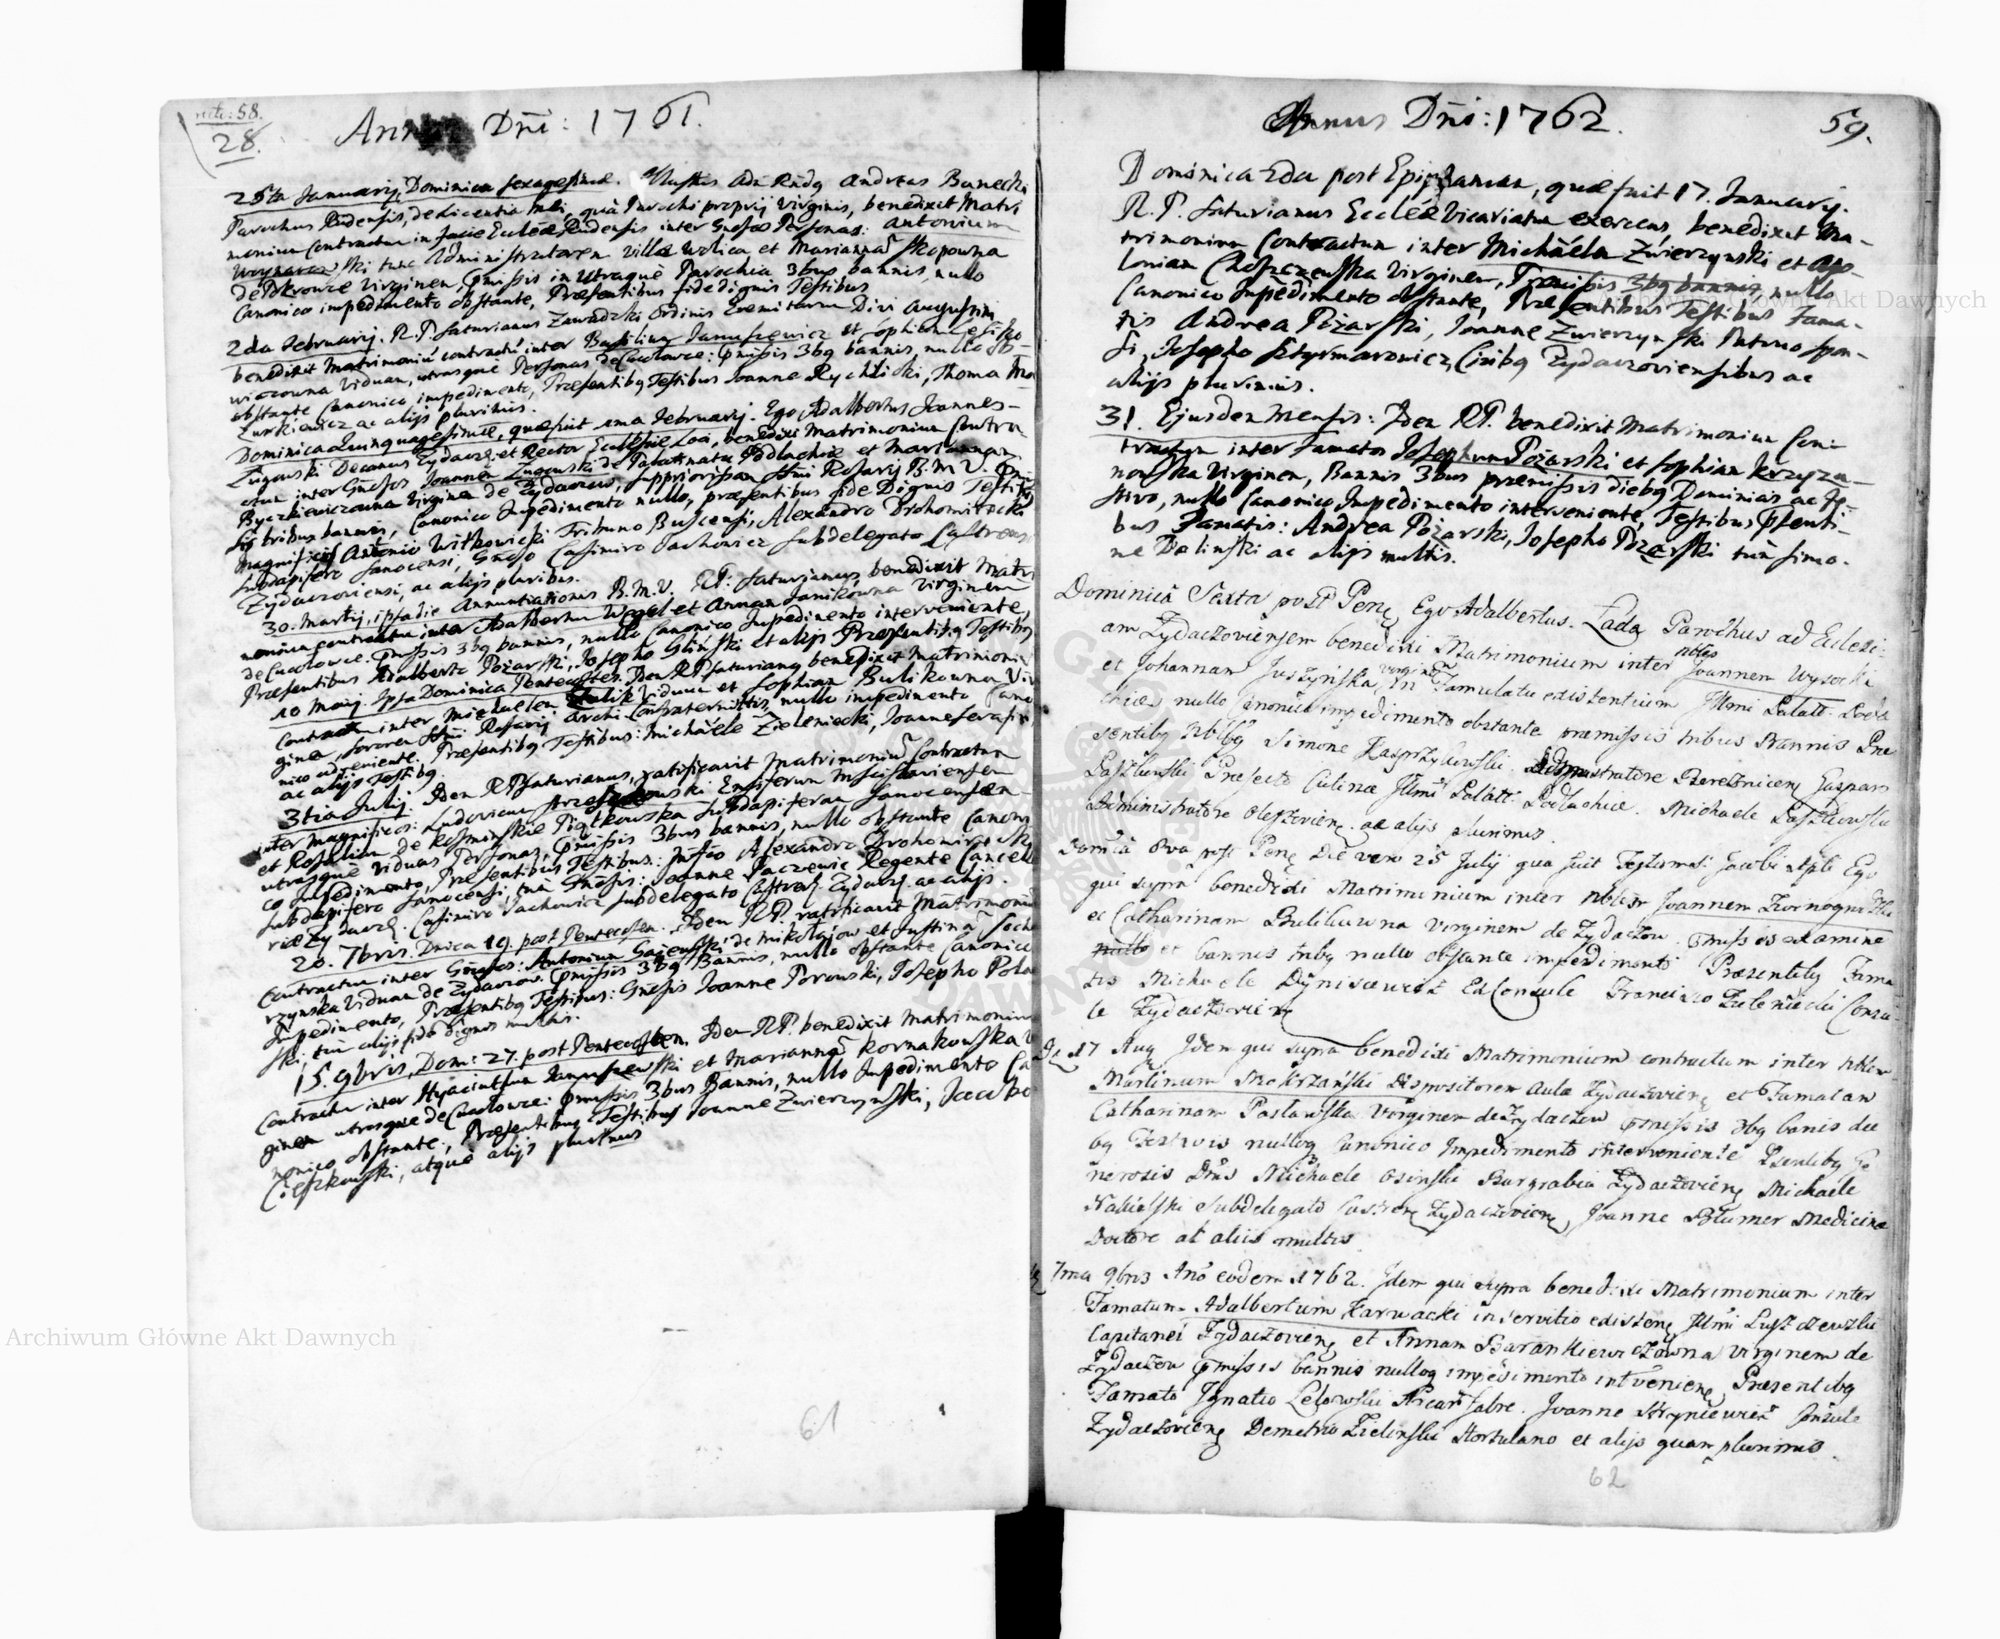 recte: 58.
28.
Annus Dni: 1761.
25ta Januarij, Dominica Sexagesimæ. Illustris Adm Rndg Andreas Banecki
Parochus Rudensis, de Licentia mei, quâ Parochi proprij Virginis, benedixit Matri
monium contractum in facie Ecclæ Rudensis inter Gnosos Personas: Antonium
tunc Administratorem villæ Wolica et Mariannam Skopowna
de Pokrowce Virginem, pmissis in utraque Parochia 3bus bannis, nullo
Canonico impedimento obstante, Præsentibus fide dignis Testibus
2da Februarij. R.P. Saturianus Zawadzki Ordinis Eremitarum Divi Augustini
benedixit Matrimoniū contractū inter Basilium Januszewicz et Sophiam
wiczowna Viduam, utrasque Personas de Cucłowce: pmissis 3bg bannis, nullo
obstante Canonico impedimento, Præsentibg Testibus Joanne Rychlicki, Thoma
Zurkiewicz ac alijs pluribus.
Dominica Quinquagesimæ, quæ fuit 1ma Februarij. Ego Adalbertus Joannes
Ługowski Decanus Zydacz: et Rector Ecclesiæ Loci, benedixi Matrimonium Contra
ctum inter Gnosos Joannem Ługowski de Palatinatu Podlachiæ et Mariannam
Byczkiewiczowna Virginem de Zydaczow, Suppriorissam Smi Rosarij B.M.V.
sis tribus bannis, Canonico Impedimento nullo, præsentibus fide Dignis Testibg
Magnificis Antonio Witkowicki Tribuno Buscensi, Alexandro Drohomirecki
Subdapifero Sanocensi, Gnoso Casimiro Jachowicz Subdelegato Castrensi
Zydaczoviensi, ac alijs pluribus.
30. Martij, ipsa die Annuntiationis B.M.V. RP: Saturianus, benedixit Matri
monium contractū inter Adalbertum Wegel et Annam Janikowna Virginem
de Cucłowce. pmissis 3bg bannis, nullo Canonico Impedimento interveniente,
Præsentibus Adalberto Pożarski, Josepho Gliński et alijs Præsentibg Testibg
10 Maij. Ipsa Dominica Pentecostes. Idem RP Saturiang benedixit Matrimoniū
Contractū inter Michaelem Viduum et Sophiam Bulikowna Vir
ginem, sororem Smi Rosarij Archi Confraternitatis, nullo impedimento Cano
nico adveniente. Præsentibg Testibus: Michaële Zieleniecki, Joanne
ac alijs testibg.
3tia Julij. Idem RP Saturianus, ratificavit Matrimoniū Contractum
inter Magnificos: Ludovicum Ensiferum Mscislaviensem
et Rosaliam de Kosminskie Piątkowska Subdapiferam Sanocensem
utrasque Viduas Personas, pmissis 3bus bannis, nullo obstante Canoni
co Impedimento, Præsentibus Testibus: Alexandro Drohomirecki
Subdapifero Sanocensi, tum Gnosis: Joanne Paczewic Regente Cancell
riæ Zydacz. Casimiro Jachowicz Subdelegato Castren. Zydacz. ac alijs.
20. 7bris. Dnica 19. post Pentecosten. Idem RP. ratificavit Matrimoniū
Contractum inter Gnosos: Antonium Gajewski de Mikołajow et Justinā
rzynska Viduam de Zydaczow. pmissis 3bg Bannis, nullo obstante Canonico
Impedimento, Præsentibg Testibus: Gnosis Joanne Porowski, Josepho
ski, tum alijs fide dignis multis.
15. 9bris, Dom: 27. post Pentecosten. Idem RP. benedixit Matrimonium
Contractū inter Hyacinthum Januszewski et Mariannā Kornakowska
ginem utrosque de Cucłowce: pmissis 3bus Bannis, nullo Impedimento Ca
nonico obstante, Præsentibus Testibus Joanne Zwierzynski, Jacobo
Cieszkowski, atque alijs plurimis
61
Annus Dni: 1762.
59.
Dominica 2da post Epiphaniam, quæ fuit 17. Januarij.
R.P. Saturianus Eccleæ Vicariatum exercens, benedixit Ma-
trimonium Contractum inter Michäelem Zwierzynski et Apo-
loniam Choszczewska Virginem, Præmissis 3bg bannis, nullo
Canonico Impedimento obstante, Præsentibus Testibus Fama-
tis Andrea Pożarski, Joanne Zwierzynski Patruo spon-
si, Josepho Sztyrmarowicz, Civibg Zydaczoviensibus ac
alijs plurimis.
31. Ejusdem Mensis: Idem RP. benedixit Matrimonium Con:
tractum inter Famatos Josephum Pożarski et Sophiam Krzyza-
nowska Virginem, Bannis 3bus præmissis diebg Dominicis ac Fe-
stivo, nullo Canonico Impedimento interveniente, Testibus Psenti-
bus Famatis: Andrea Pożarski, Josepho Pożarski tum Simo-
ne Balinski ac alijs multis.
Dominica Sexta post Pent Ego Adalbertus Łada Parochus ad Eclesi-
am Zydaczoviensem benedixi Matrimonium inter nbles Joannem Wysocki
et Johannam Juszynska virginem in Famulatu existentium Illmi Palatt: Podla
chiæ nullo Canonico impedimento obstante præmissis tribus Bannis Præ
sentibg Nbilbg Simone Kasprzykowski Administratore Bereznicen Gaspare
Paszkowski Prefecto Culinæ Illmi Palatt: Podlachiæ. Michaele Paszkowski
Administratore Oleszovien ac alijs plurimis.
Domca 8va post Pent Die vero 25 Julij qua fuit Festum Sti: Jacobi Apli Ego
qui supra benedixi Matrimonium inter Nblem Joannem
et Catharinam Bulikuwna Virginem de Zydaczow pmissis examine
nullo et bannis tribg nullo obstance impedimento Præsentibg Fama
tis Michaele ExConsule Francisco Zieleniecki Consu-
le Zydaczovien
17 Aug Idem qui supra benedixi Matrimonium contractum inter Nblem
Martinum Mokrzański Dispositorem Aulæ Zydaczovien et Famatam
Catharinam Pasławska Virginem de Zydaczow pmissis 3bg banis die
bg Festivis nulloq Canonico Impedimento interveniente Psentibg Ge
nerosis Dnis Michaele Osinski Burgrabia Zydaczovien Michaele
Nabielski Subdelegato Castren Zydaczovien, Joanne Blumer Medicinæ
Doctore at aliis multis
7ma 9bris Anō eodem 1762. Idem qui supra bened:xi Matrimonium inter
Famatum Adalbertum Karwacki in servitio existen Illmi
Capitanei Zydaczovien et Annam Barankiewiczowna Virginem de
Zydaczow pmissis bannis nulloq impedimento intvenien Præsentibg
Famato Ignatio Joanne Hryniewicz Consule
Zydaczovien Demetrio Zielinski Hortulano et alijs quam plurimis.
62
Archiwum Główne Akt Dawnych
Archiwum Główne Akt Dawnych